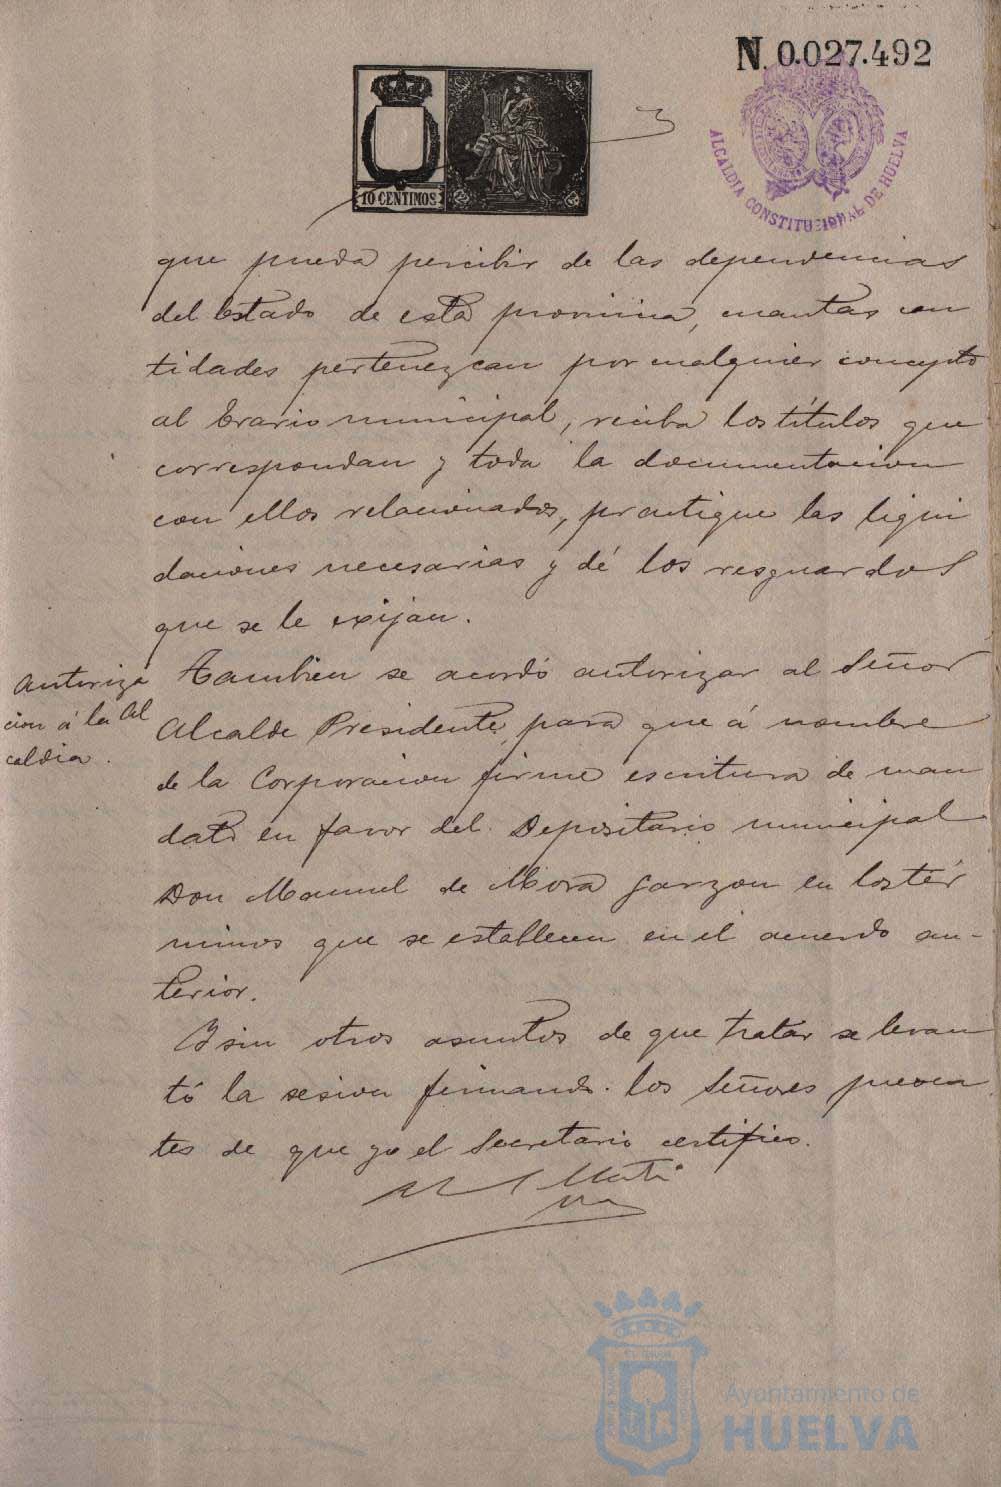 N. 0.027.492
10 CENTIMOS
3
ALCALDIA CONSTITUCIONAL DE HUELVA
que pueda percibir de las dependencias
del Estado de esta provincia, cuantas can
tidades pertenezcan por cualquier concepto
al Erario municipal, reciba los títulos que
correspondan y toda la documentacion
con ellos relacionados, practique las liqui
daciones necesarias y dé los resguardos
que se le exijan.
Autoriza
cion á la Al
caldia.
Tambien se acordó autorizar al Señor
Alcalde Presidente, para que á nombre
de la Corporacion firme escritura de man
dato en favor del Depositario municipal
Don Manuel de Mora Garzon en los tér
minos que se establecen en el acuerdo an-
terior.
Y sin otros asuntos de que tratar se levan
tó la sesion firmando los Señores presen
tes de que yo el Secretario certifico.
Ayuntamiento de
HUELVA